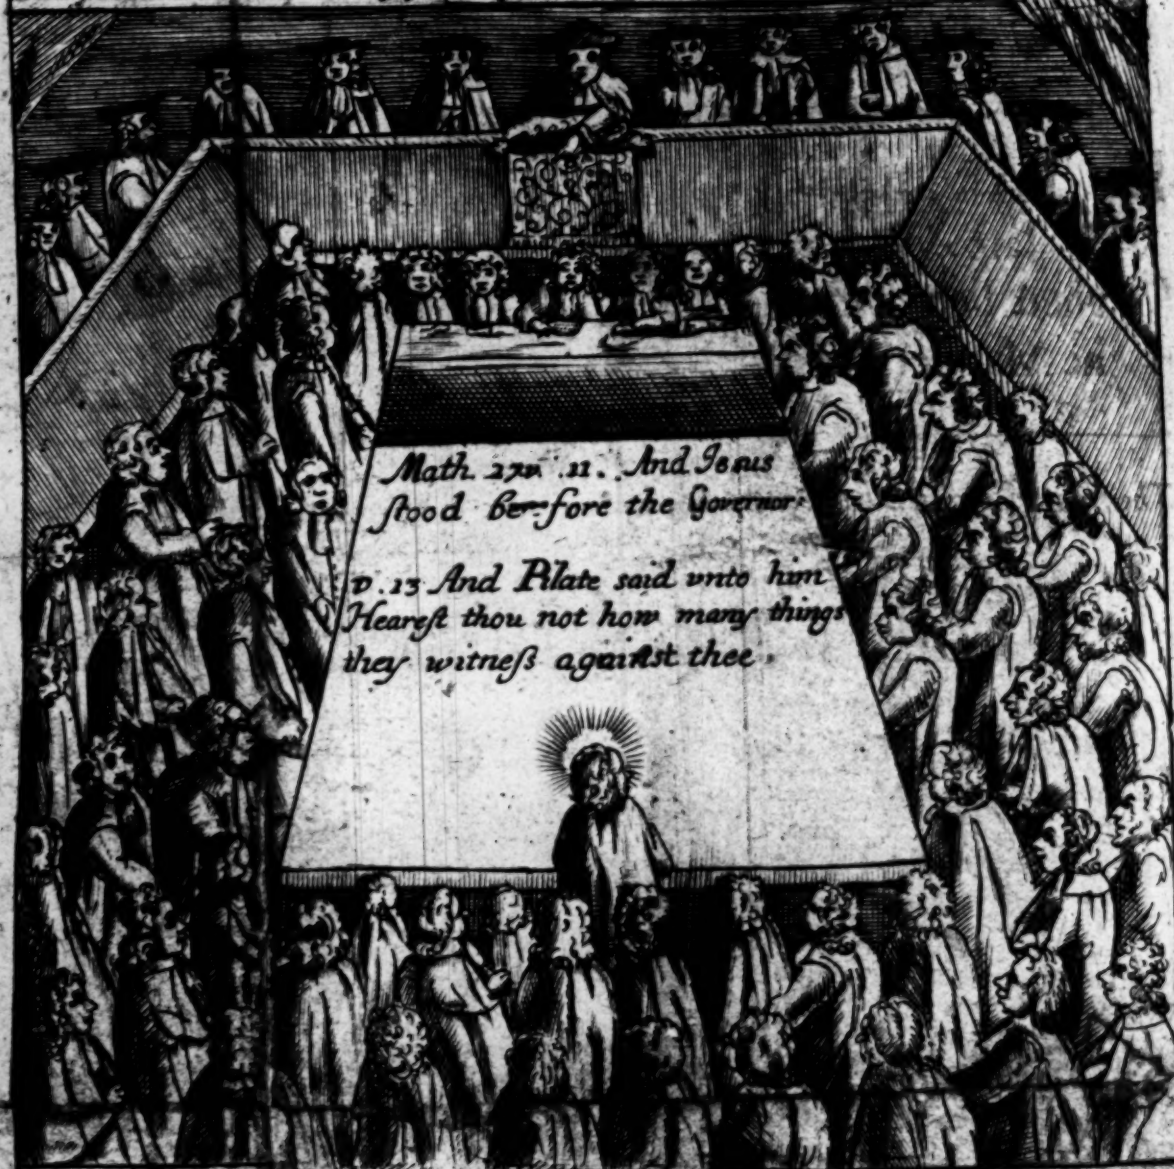 Math. 27v. .11. And Jesus
stood before the Governor:
v.13 And Pilate said vnto him
Hearest thou not how many things
they witneſs against thee.